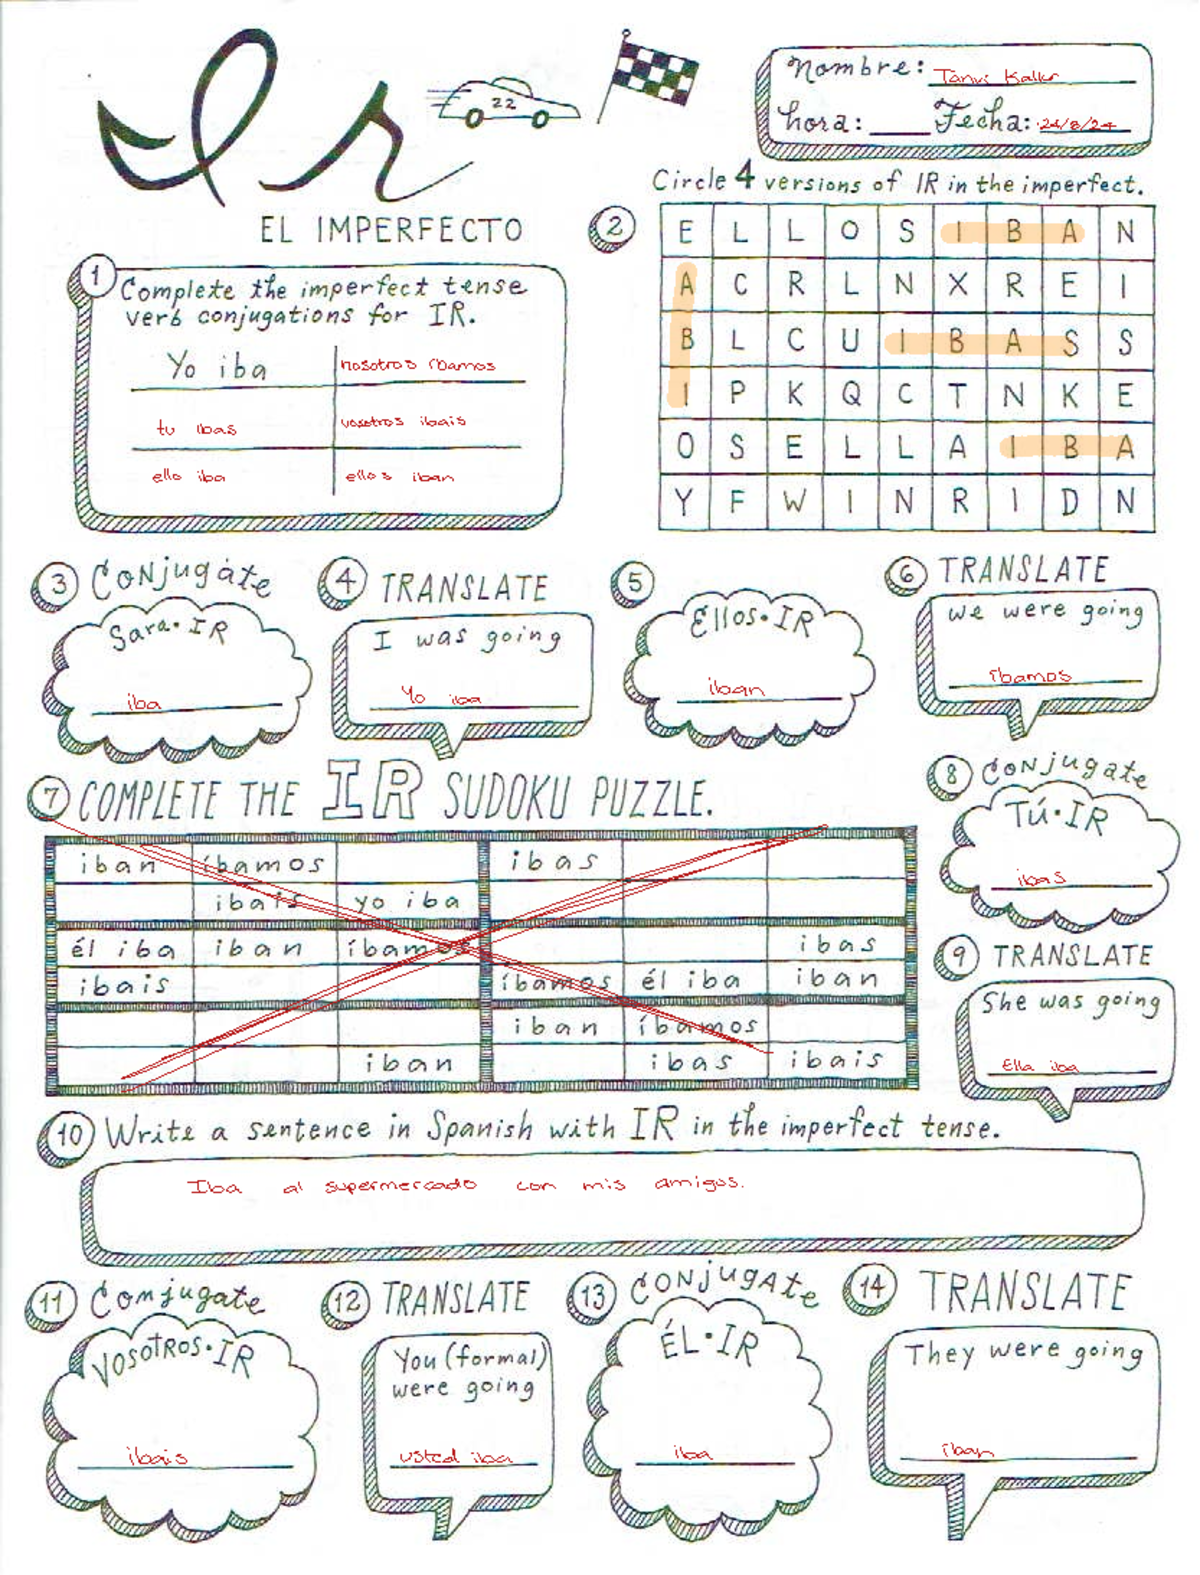 Ir
22
Nombre: Tanvi
hora: ____ Fecha: 24/8/24
EL IMPERFECTO
Circle 4 versions of IR in the imperfect.
1 Complete the imperfect tense
verb conjugations for IR.
Yo iba nosotros íbamos
tu ibas vosotros ibais
ella iba ellos iban
2
E L L O S I B A N
A C R L N X R E I
B L C U I B A S S
I P K Q C T N K E
O S E L L A I B A
Y F W I N R I D N
3 Conjugate
Sara • IR
iba
4 TRANSLATE
I was going
Yo iba
5
Ellos • IR
iban
6 TRANSLATE
we were going
íbamos
7 COMPLETE THE IR SUDOKU PUZZLE.
iban íbamos ibas
ibais yo iba
él iba iban íbamos ibas
ibais íbamos él iba iban
iban íbamos
iban ibas ibais
8 Conjugate
Tú • IR
ibas
9 TRANSLATE
She was going
Ella iba
10 Write a sentence in Spanish with IR in the imperfect tense.
Iba al supermercado con mis amigos.
11 Conjugate
Vosotros • IR
ibais
12 TRANSLATE
You (formal)
were going
usted iba
13 Conjugate
ÉL • IR
iba
14 TRANSLATE
They were going
iban